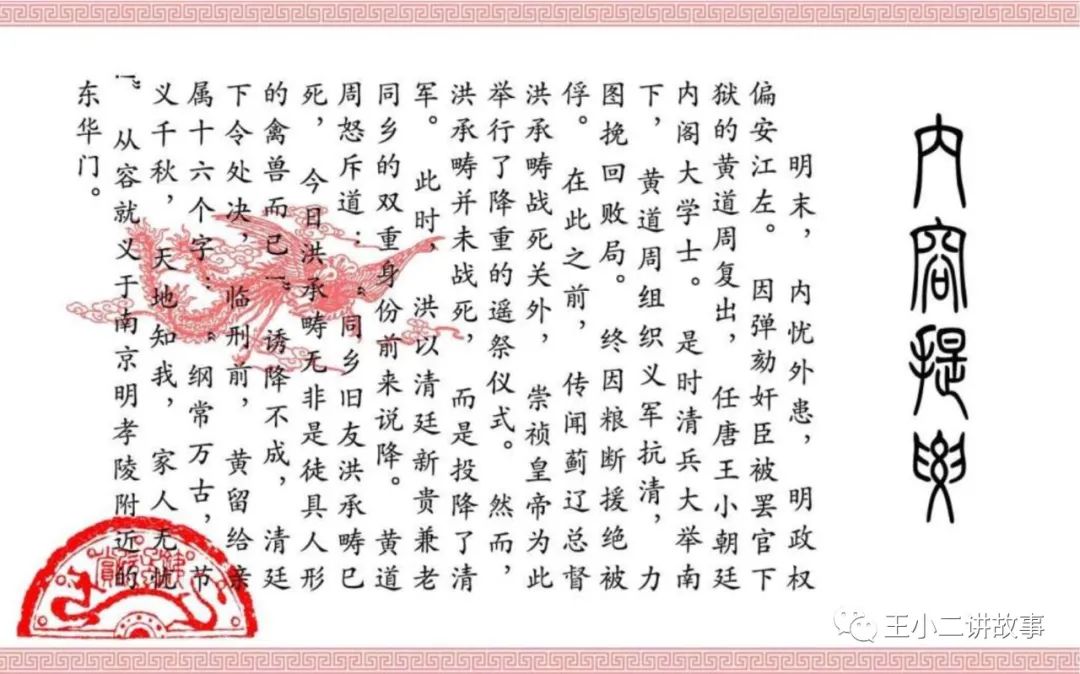 内容提要
明末，内忧外患，明政权
偏安江左。因弹劾奸臣被罢官下
狱的黄道周复出，任唐王小朝廷
内阁大学士。是时清兵大举南
下，黄道周组织义军抗清，力
图挽回败局。终因粮断援绝被
俘。在此之前，传闻蓟辽总督
洪承畴战死关外，崇祯皇帝为此
举行了降重的遥祭仪式。然而，
洪承畴并未战死，而是投降了清
军。此时，洪以清廷新贵兼老
同乡的双重身份前来说降。黄道
周怒斥道：“同乡旧友洪承畴已
死，今日洪承畴无非是徒具人形
的禽兽而已”。诱降不成，清廷
下令处决，临刑前，黄留给亲
属十六个字：“纲常万古，节
义千秋，天地知我，家人无忧
”。从容就义于南京明孝陵附近的
东华门。
王小二讲故事